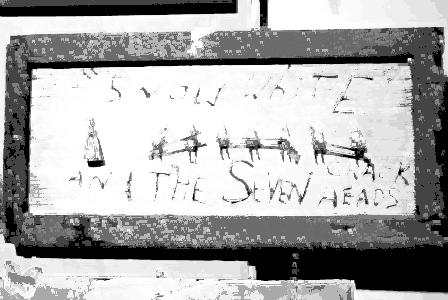 "SNOW WHITE
AND THE SEVEN CRACK HEADS